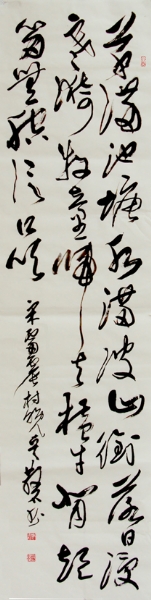 草满池塘水满陂山衔落日浸
寒漪牧童归去横牛背短
笛无腔信口吹
宋雷震村晚